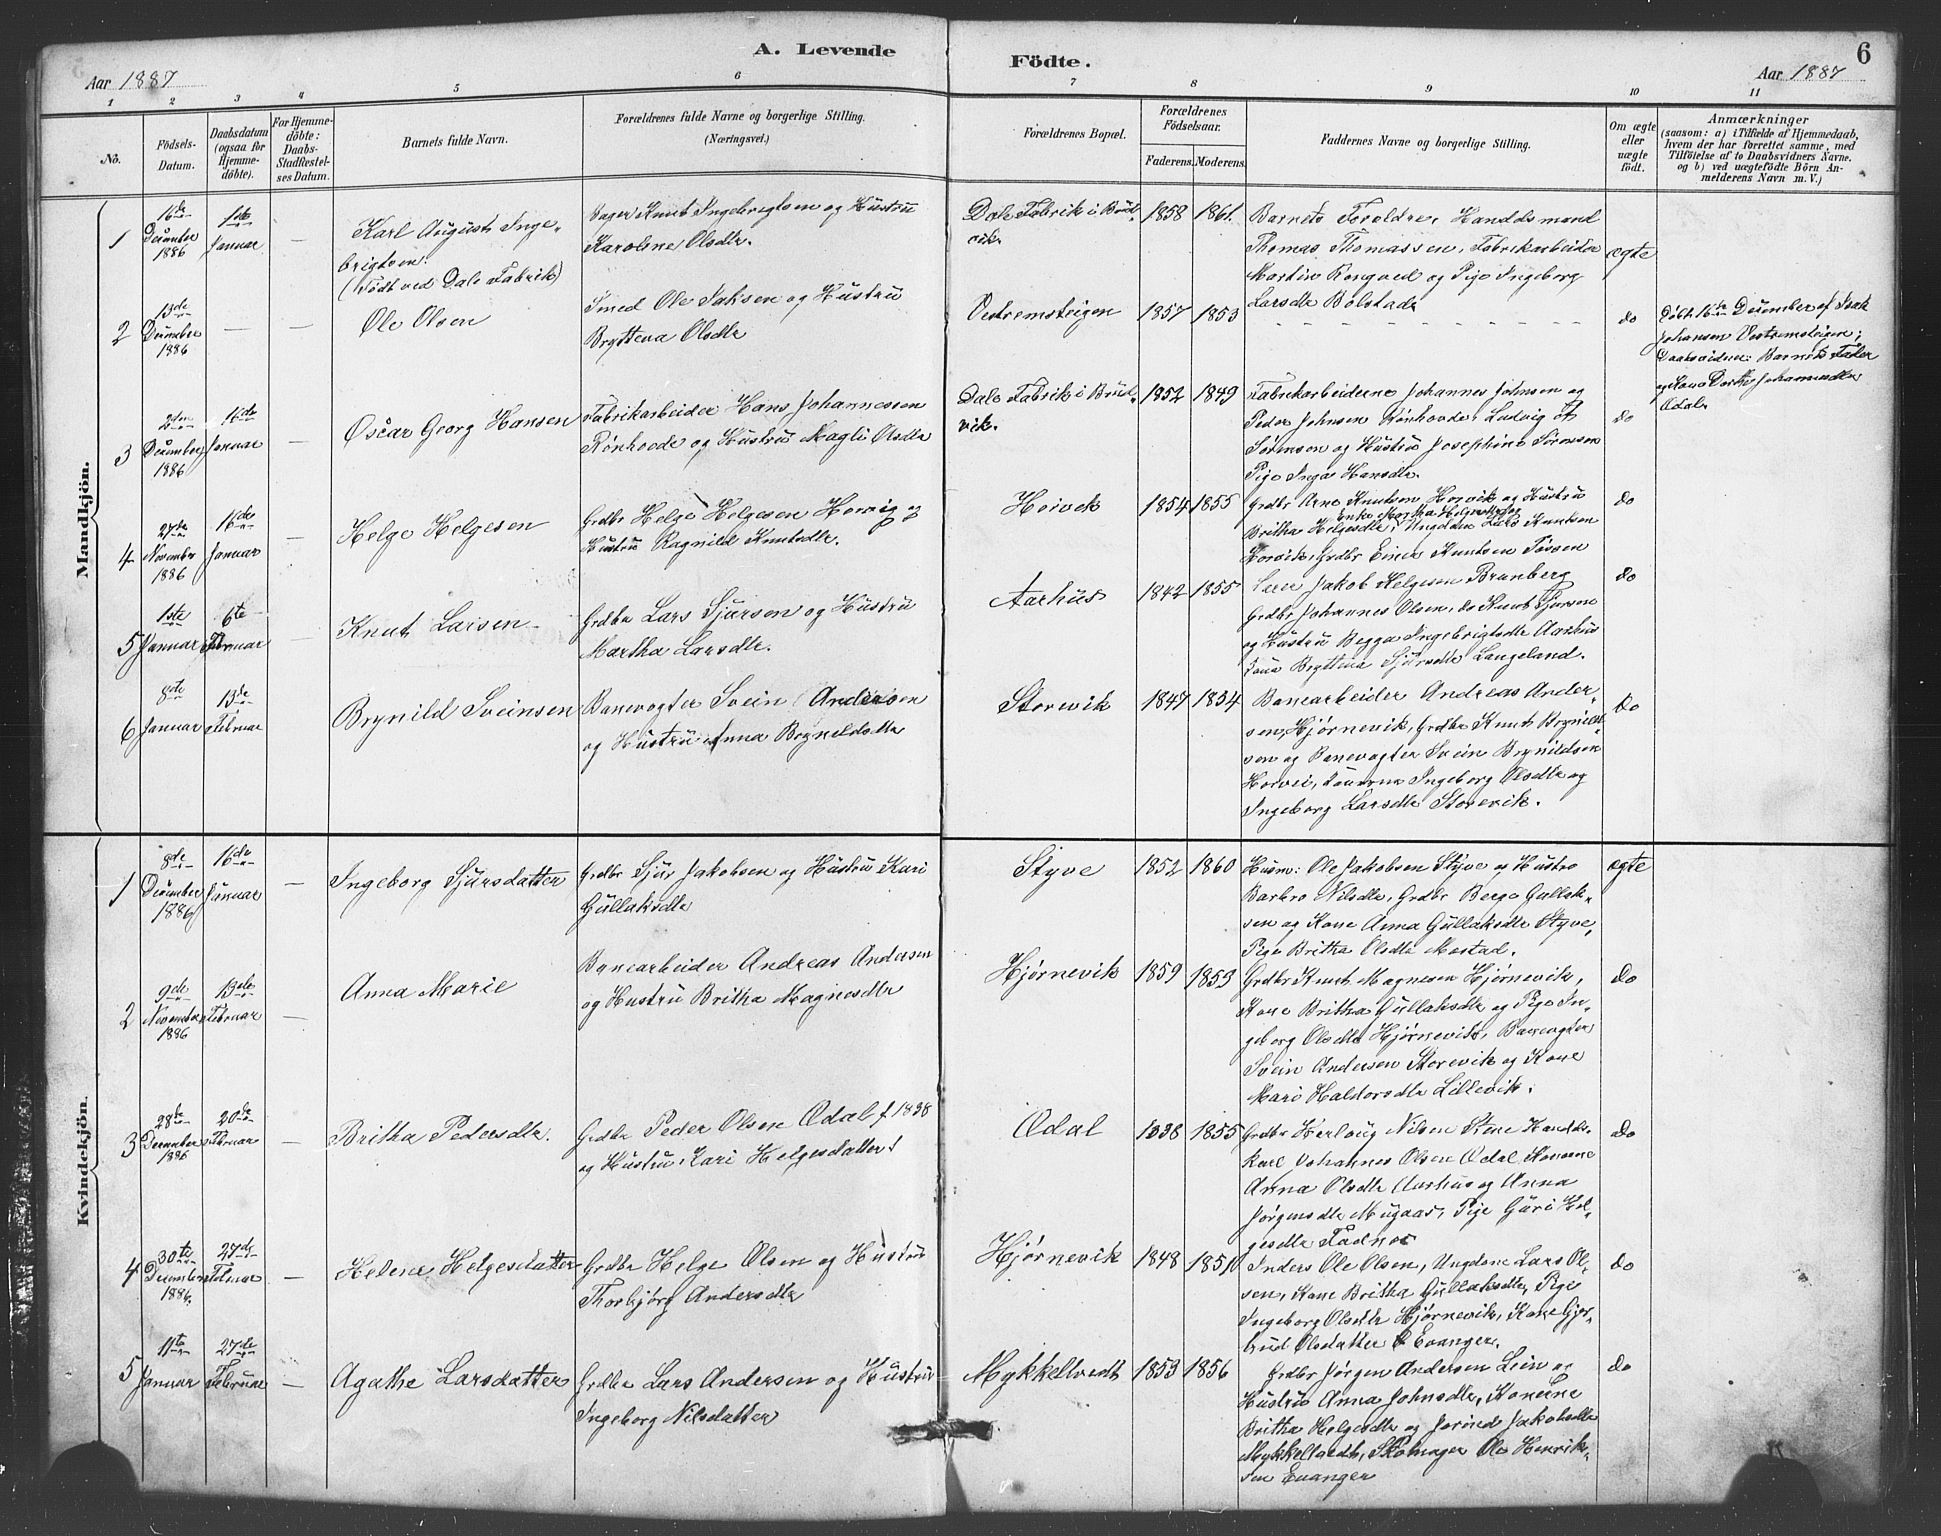 A. Levende Födte.
6
Aar 1887
Aar 1887
1 2 3 4 5 6 7 8 9 10 11
No.
Födsels-
Datum.
Daabsdatum
(ogsaa for
Hjemme-
döbte).
For Hjemme-
döbte:
Daabs-
Stadfæstel-
ses Datum.
Barnets fulde Navn.
Forældrenes fulde Navne og borgerlige Stilling.
(Næringsvei.)
Forældrenes Bopæl.
Forældrenes
Födselsaar.
Faderens.
Moderens.
Faddernes Navne og borgerlige Stilling.
Om ægte
eller
uægte
födt.
Anmærkninger
(saasom: a) i Tilfælde af Hjemmedaab,
hvem der har forrettet samme, med
Tilföielse af to Daabsvidners Navne.
og b) ved uægtefödte Börn An-
melderens Navn m. V.)
Mandkjön.
1
16de
December
1886
1ste
Januar
—
Karl August Inge-
brigtsen.
(Født ved Dale Fabrik)
Knut Ingebrigtsen og Hustru
Karolene Olsdtr.
Dale Fabrik i Brud-
vik.
1858
1861.
Barnets Foreldre, Handelsmand
Thomas Thomassen, Fabrikarbeider
Martin Rongved og Pige Ingeborg
Larsdtr Bolstad
ægte
2
13de
December
1886
—
—
Ole Olsen
Smed Ole Isaksen og Hustru
Brytteva Olsdtr
Vestremsteigen
1857
1853
do
Døbt 16de December af Isak
Johansen Vestremsteigen;
Daabsvidner: Barnets Fader
og Kone Dorthe Johannesdtr
Ødal.
3
2den
December
1886
16de
Januar
—
Oscar Georg Hansen
Fabrikarbeider Hans Johannessen
Rønhovde og Hustru Magli Olsdtr
Dale Fabrik i Brud-
vik.
1852
1849
Fabrikarbeiderne Johannes Johnsen og
Peder Johnsen Rønhovde, Ludvig A
Sørensen og Hustru Josephine Sørensen
Pige Inga Hansdtr.
do
4
27de
November
1886
16de
Januar
—
Helge Helgesen
Grdbr Helge Helgesen Horvig og
Hustru Ragnild Knutsdtr.
Horvik
1854
1855
Grdbr Arne Knutsen Horvik og Hustru
Enke Martha Helgesdtr
Britha Helgesdtr, Ungdom Lars Knutsen
Horvik, Grdbr Einar Knutsen Fossen
do
5
1ste
Januar
6te
Februar
Knut Larsen
Grdbr Lars Sjursen og Hustru
Martha Larsdtr.
Aarhus
1842
1855
Jakob Helgesen Brunberg
Grdbr Johannes Olsen, do Knut Sjursen
og Hustru Begga Ingebrigtsdtr Aarhus
Brytteva Sjursdtr Langeland.
do
6
8de
Januar
13de
Februar
Brynild Sveinsen
Banevogter Svein Andersen
og Hustru Anna Brynildsdtr
Storevik
1847
1854
Banearbeider Andreas Ander-
sen, Hjørnevik, Grdbr Knut Brynild-
sen og Banevogter Svein Brynildsen
Horvei, Konerne Ingeborg Olsdtr og
Ingeborg Larsdtr Storevik.
do
Kvindekjön.
1
8de
December
1886
16de
Januar
—
Ingeborg Sjursdatter
Grdbr Sjur Jakobsen og Hustru Kari
Gullaksdtr
Styve
1852
1860
Husm: Ole Jakobsen Styve og Hustro
Barbro Nilsdtr, Grdbr Berge Gullak-
sen og Kone Anna Gullaksdtr Styve,
Pige Britha Olsdtr Mostad.
ægte
2
9de
November
1886
13de
Februar
—
Anna Marie
Banearbeider Andreas Andersen
og Hustru Britha Magnesdtr
Hjørnevik
1859
1853
Grdbr Knut Magnesen Hjørnevik,
Kone Britha Gullaksdtr og Pige In-
geborg Olsdtr Hjørnevik, Banevogter
Svein Andersen Storevik og Kone
Mari Haldorsdtr Lillevik.
do
3
28de
December
1886
20de
Februar
—
Britha Pedersdtr.
Grdbr Peder Olsen Ødal f 1838
og Hustru Kari Helgesdatter
Ødal
1838
1855
Grdbr Herloug Nilsen Stene Handels-
karl Johannes Olsen Ødal, Konerne
Anna Olsdtr Aarhus og Anna
Jørgensdtr Mugaas, Pige Guri Hel-
gesdtr Fadnes
do
4
30te
December
1886.
27de
Februar
—
Helene Helgesdatter
Grdbr Helge Olsen og Hustru
Thorbjørg Andersdtr
Hjørnevik
1848
1851
Inders Ole Olsen, Ungdom Lars Ol-
sen, Kone Britha Gullaksdtr, Pige
Ingeborg Olsdtr Hjørnevik, Kone Gjer-
trud Olsdatter Evanger.
do
5
11te
Januar
27de
Februar
—
Agathe Larsdatter
Grdbr Lars Andersen og Hustru
Ingeborg Nilsdatter
Mykkeltvedt
1853
1856
Grdbr Jørgen Andersen Lein og
Hustru Anna Johnsdtr, Konerne
Britha Helgesdtr og Jorind Jakobsdtr
Mykkeltvedt, Skomager Ole Henrik-
sen Evanger
do